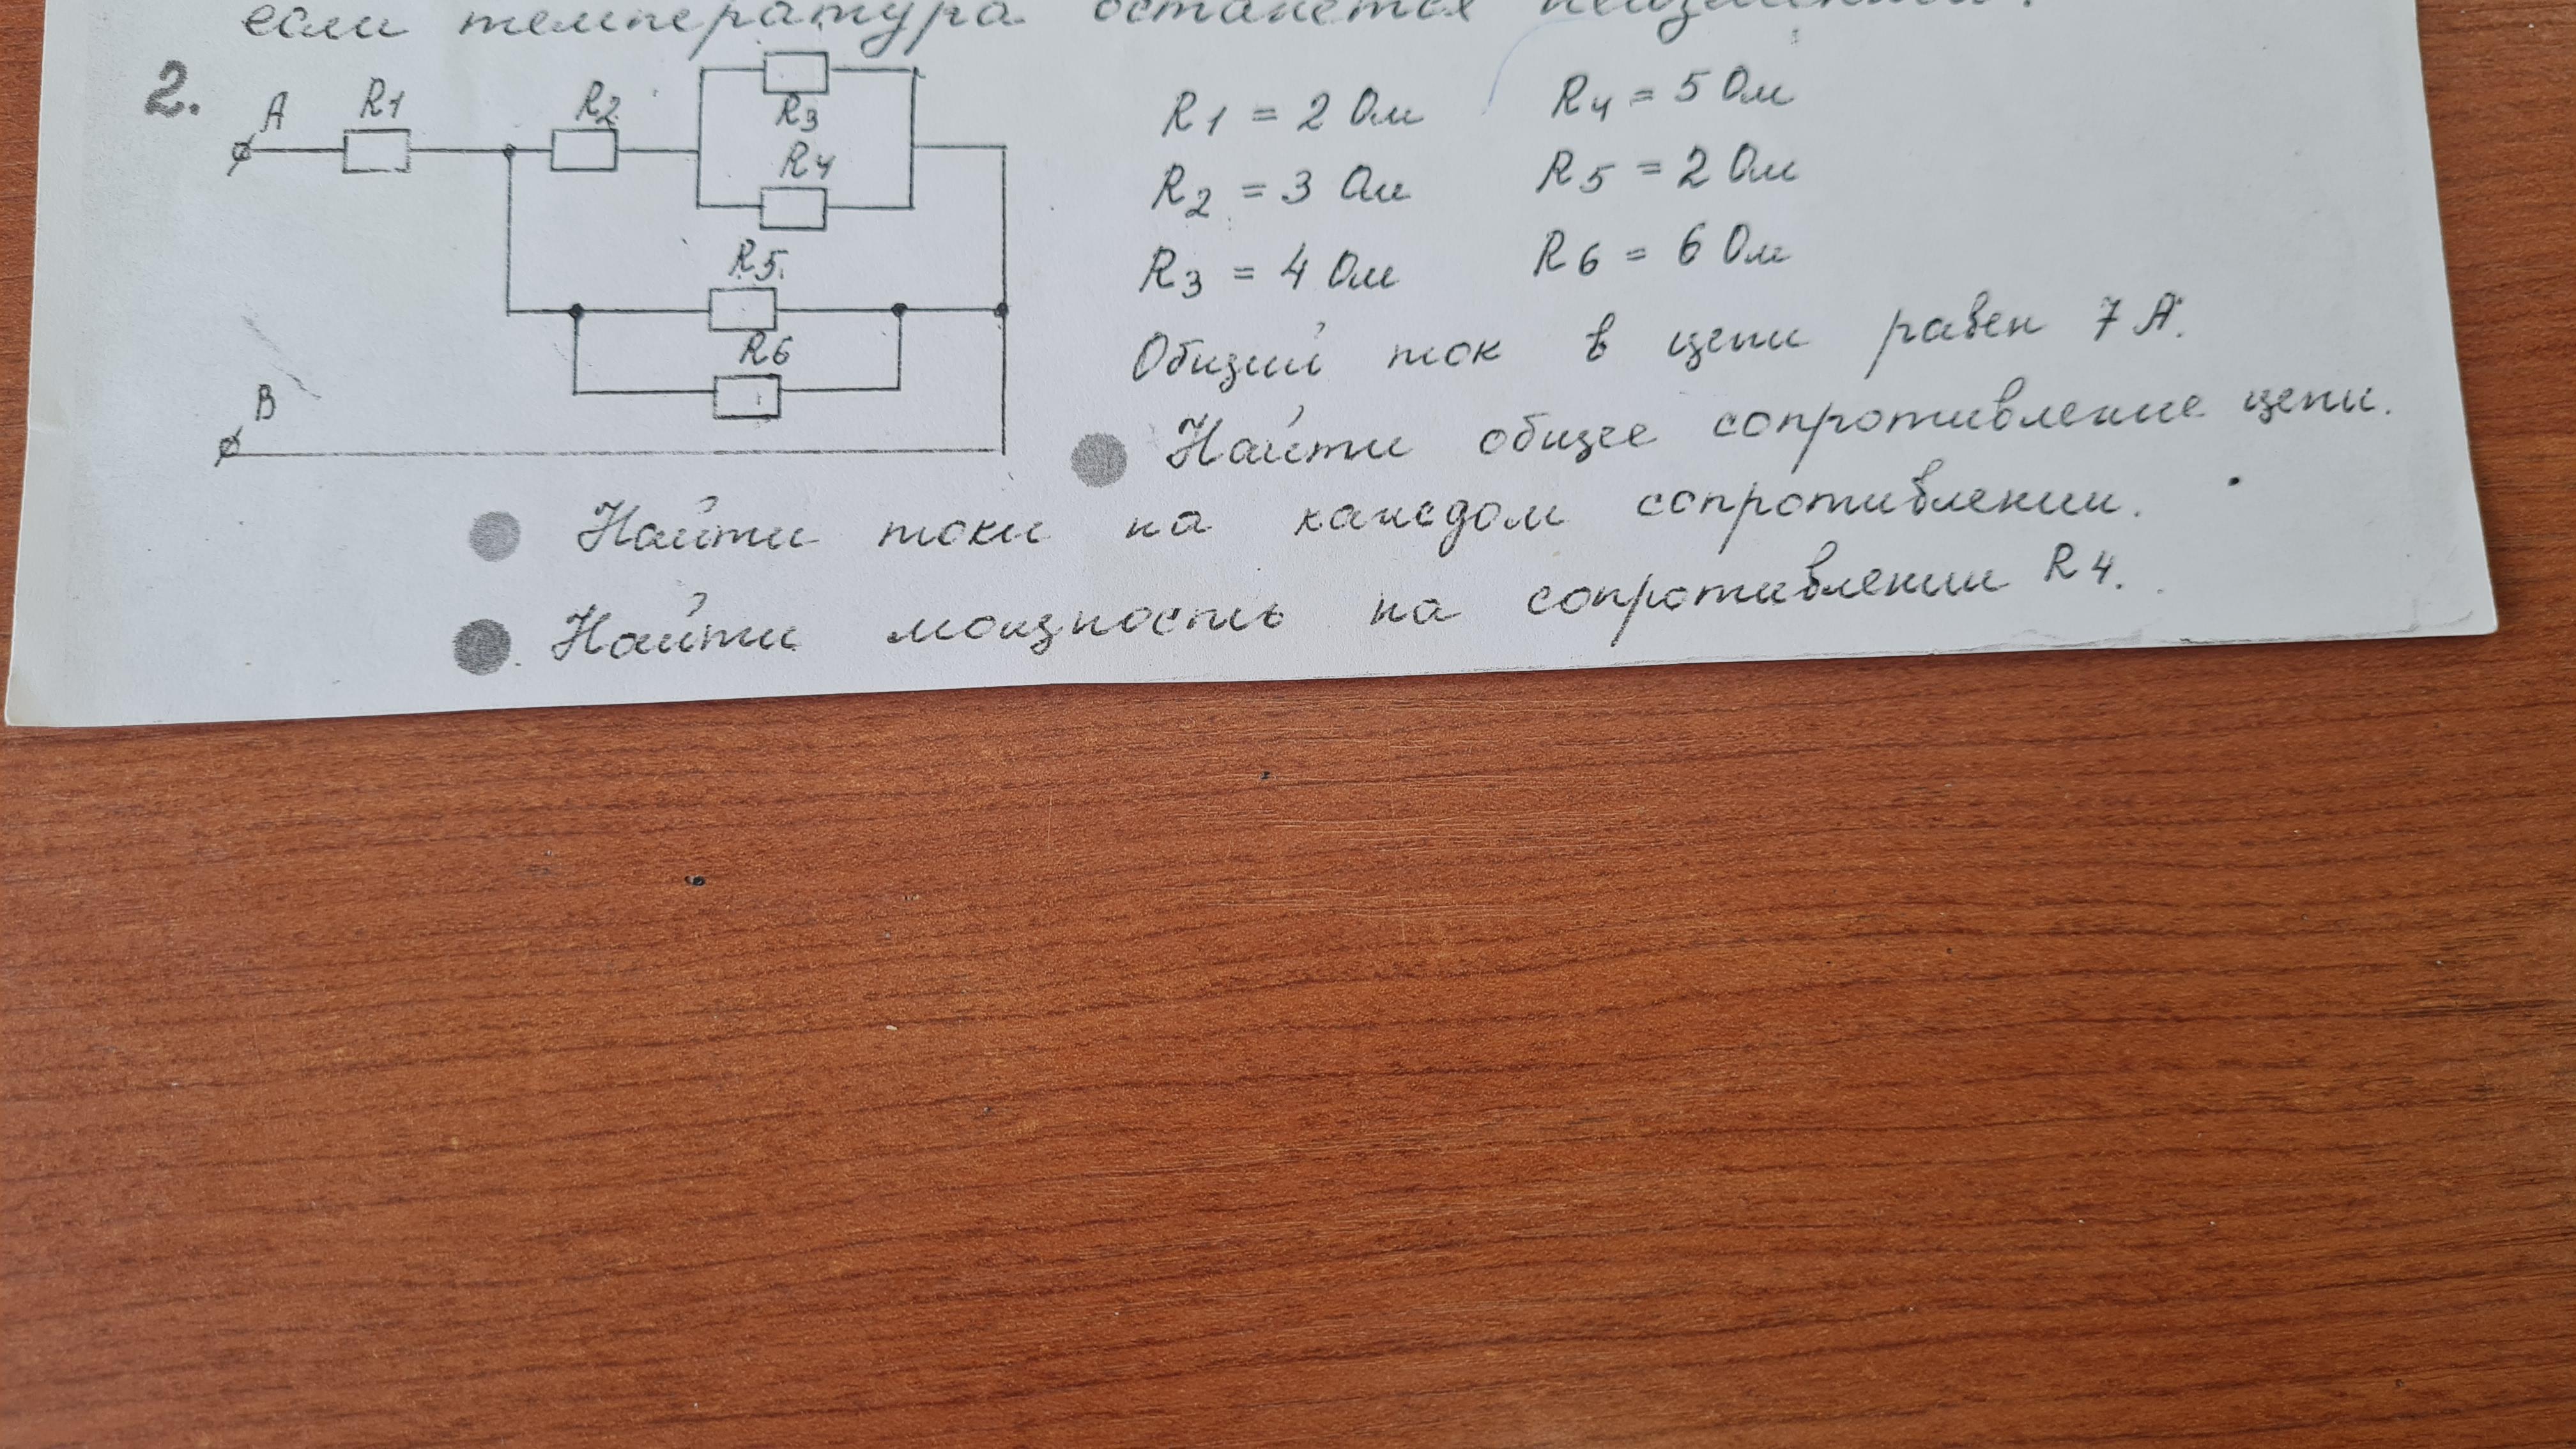 если температура останется неизменной?
2.
A R1 R2 R3
R4
R5
R6
B
R1 = 2 Ом R4 = 5 Ом
R2 = 3 Ом R5 = 2 Ом
R3 = 4 Ом R6 = 6 Ом
Общий ток в цепи равен 7 А.
Найти общее сопротивление цепи.
Найти токи на каждом сопротивлении.
Найти мощность на сопротивлении R4.